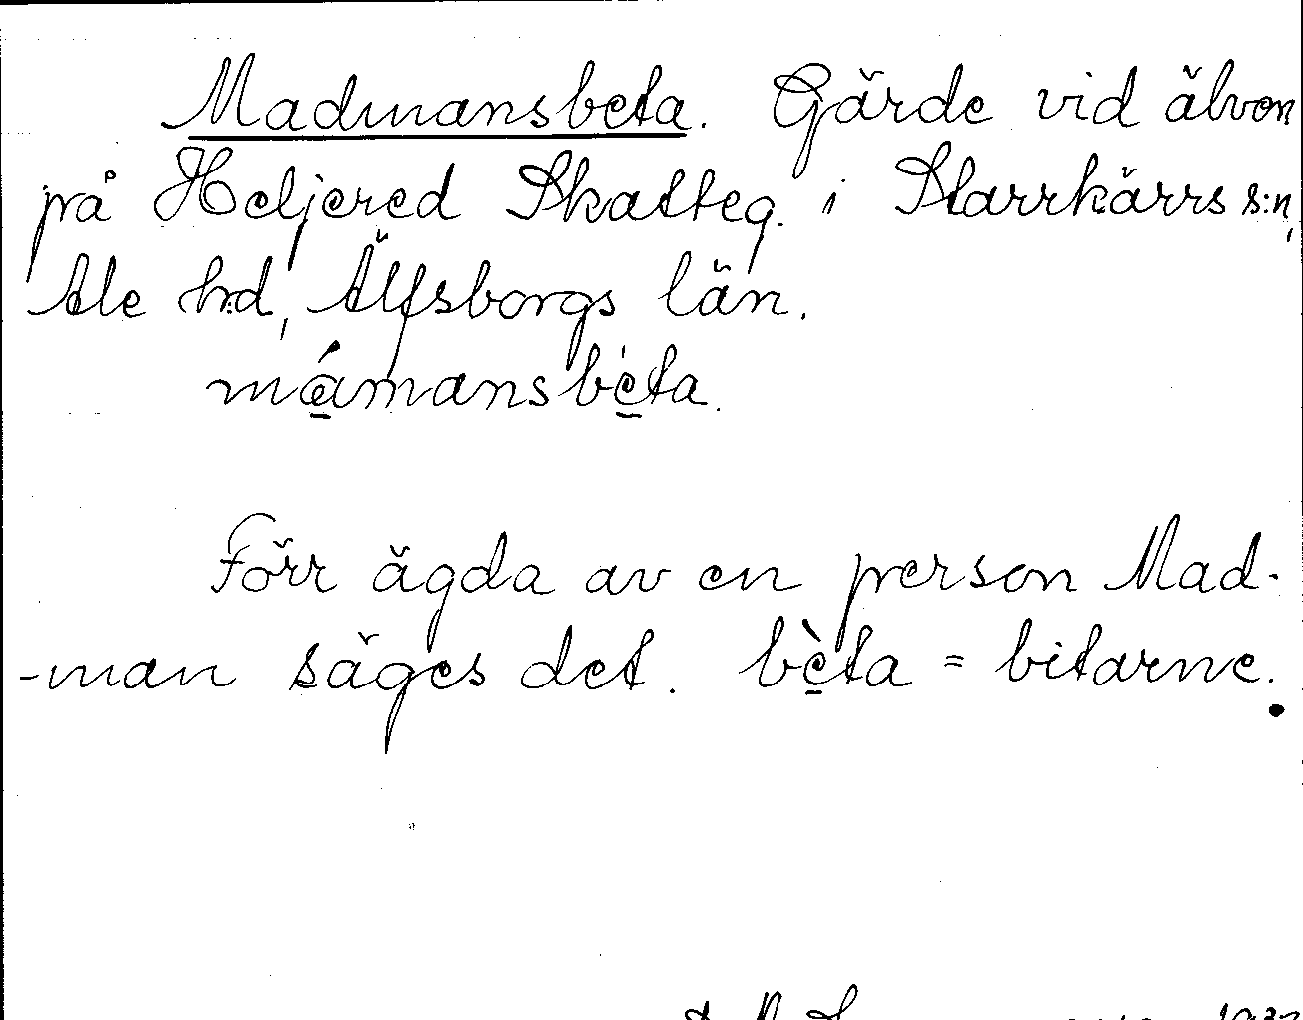 Madmansbeta. Gärde vid älven
på Heljered Skatteg. i Starrkärrs s:n,
Ale h:d, Älfsborgs län.
mámansbèta.
Förr ägda av en person Mad-
-man säges det. bèta = bitarne.